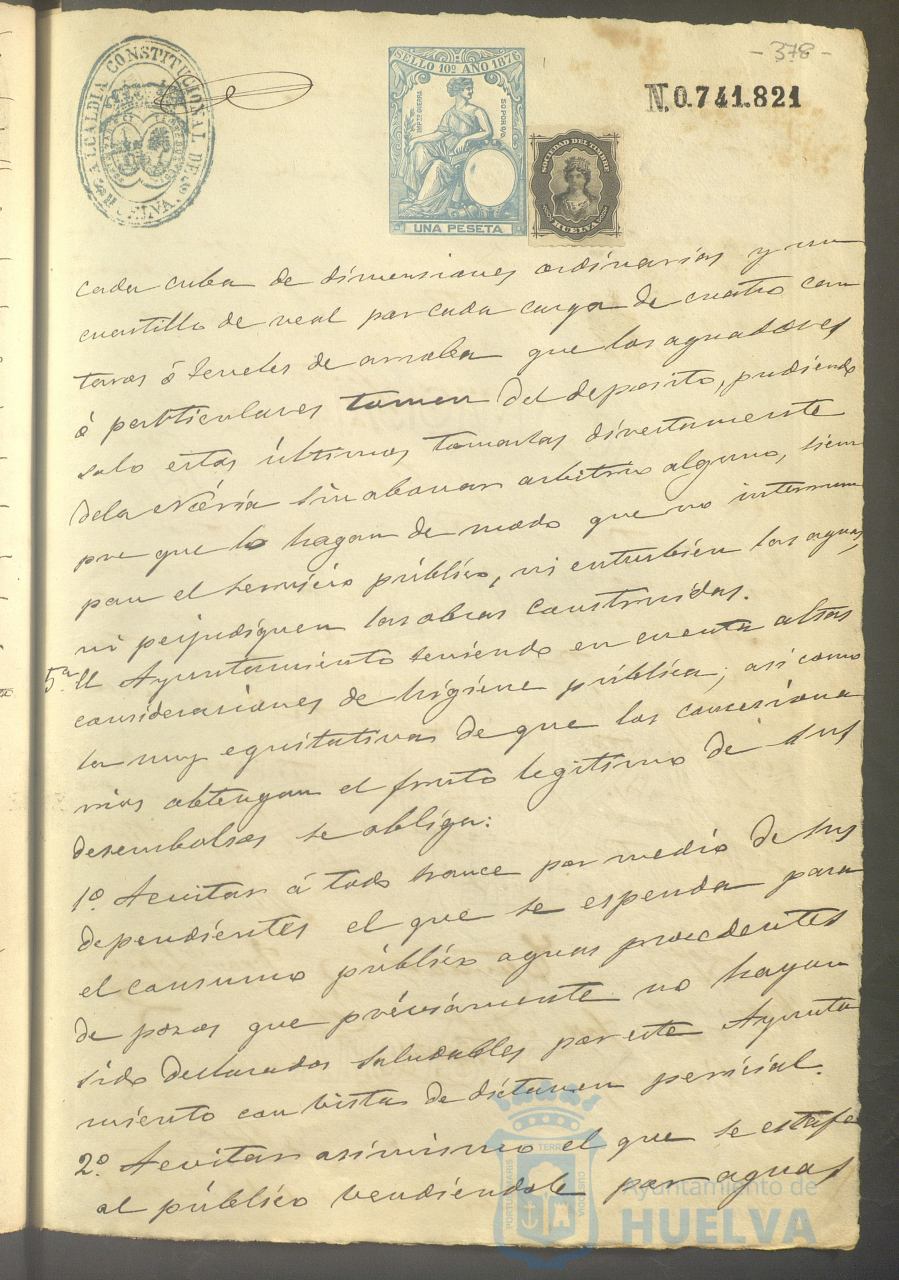 - 378 -
ALCALDIA CONSTITUCIONAL DE HUELVA
SELLO 10º AÑO 1876
UNA PESETA
SOCIEDAD DEL TIMBRE
HUELVA
N. 0.741.821
cada cuba de dimensiones ordinarias y un
cuartillo de real por cada carga de cuatro can
taros ó teneles de arroba que los aguadores
ó particulares tomen del deposito, pudiendo
solo estos últimos tomarlas directamente
dela Nória sin abonar arbitrio alguno, siem
pre que lo hagan de modo que no interrum
pan el servicio público, ni enturbien las aguas,
ni perjudiquen las obras construidas.
5ª. El Ayuntamiento teniendo en cuenta altas
consideraciones de higiene pública, asi como
la muy equitativa de que los concesiona
rios obtengan el fruto legitimo de sus
desembolsos se obliga:
1º. A evitar á todo trance por medio de sus
dependientes el que se espenda para
el consumo público aguas procedentes
de pozos que préviamente no hayan
sido declarados saludables por este Ayunta
miento con vista de dictamen pericial.
2º. A evitar asimismo el que se estafe
al público vendiéndole por aguas
PORTUS MARIS
TERRE
CUSTODIA
Ayuntamiento de
HUELVA